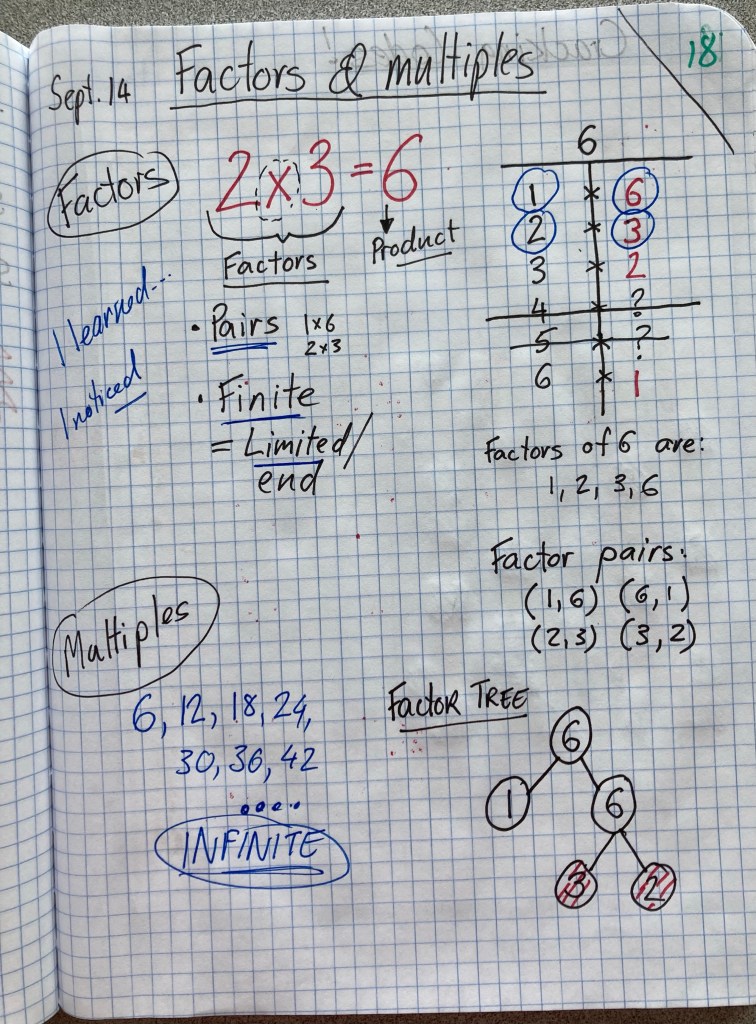 Sept. 14
Factors & multiples
18
Factors
2 x 3 = 6
Factors
Product
I learned...
I noticed
• Pairs 1x6
2x3
• Finite
= Limited/
end
6
1 x 6
2 x 3
3 x 2
4 x ?
5 x ?
6 x 1
Factors of 6 are:
1, 2, 3, 6
Factor pairs:
(1,6) (6,1)
(2,3) (3,2)
Multiples
6, 12, 18, 24,
30, 36, 42
....
INFINITE
FactoR TREE
6
1 6
3 2